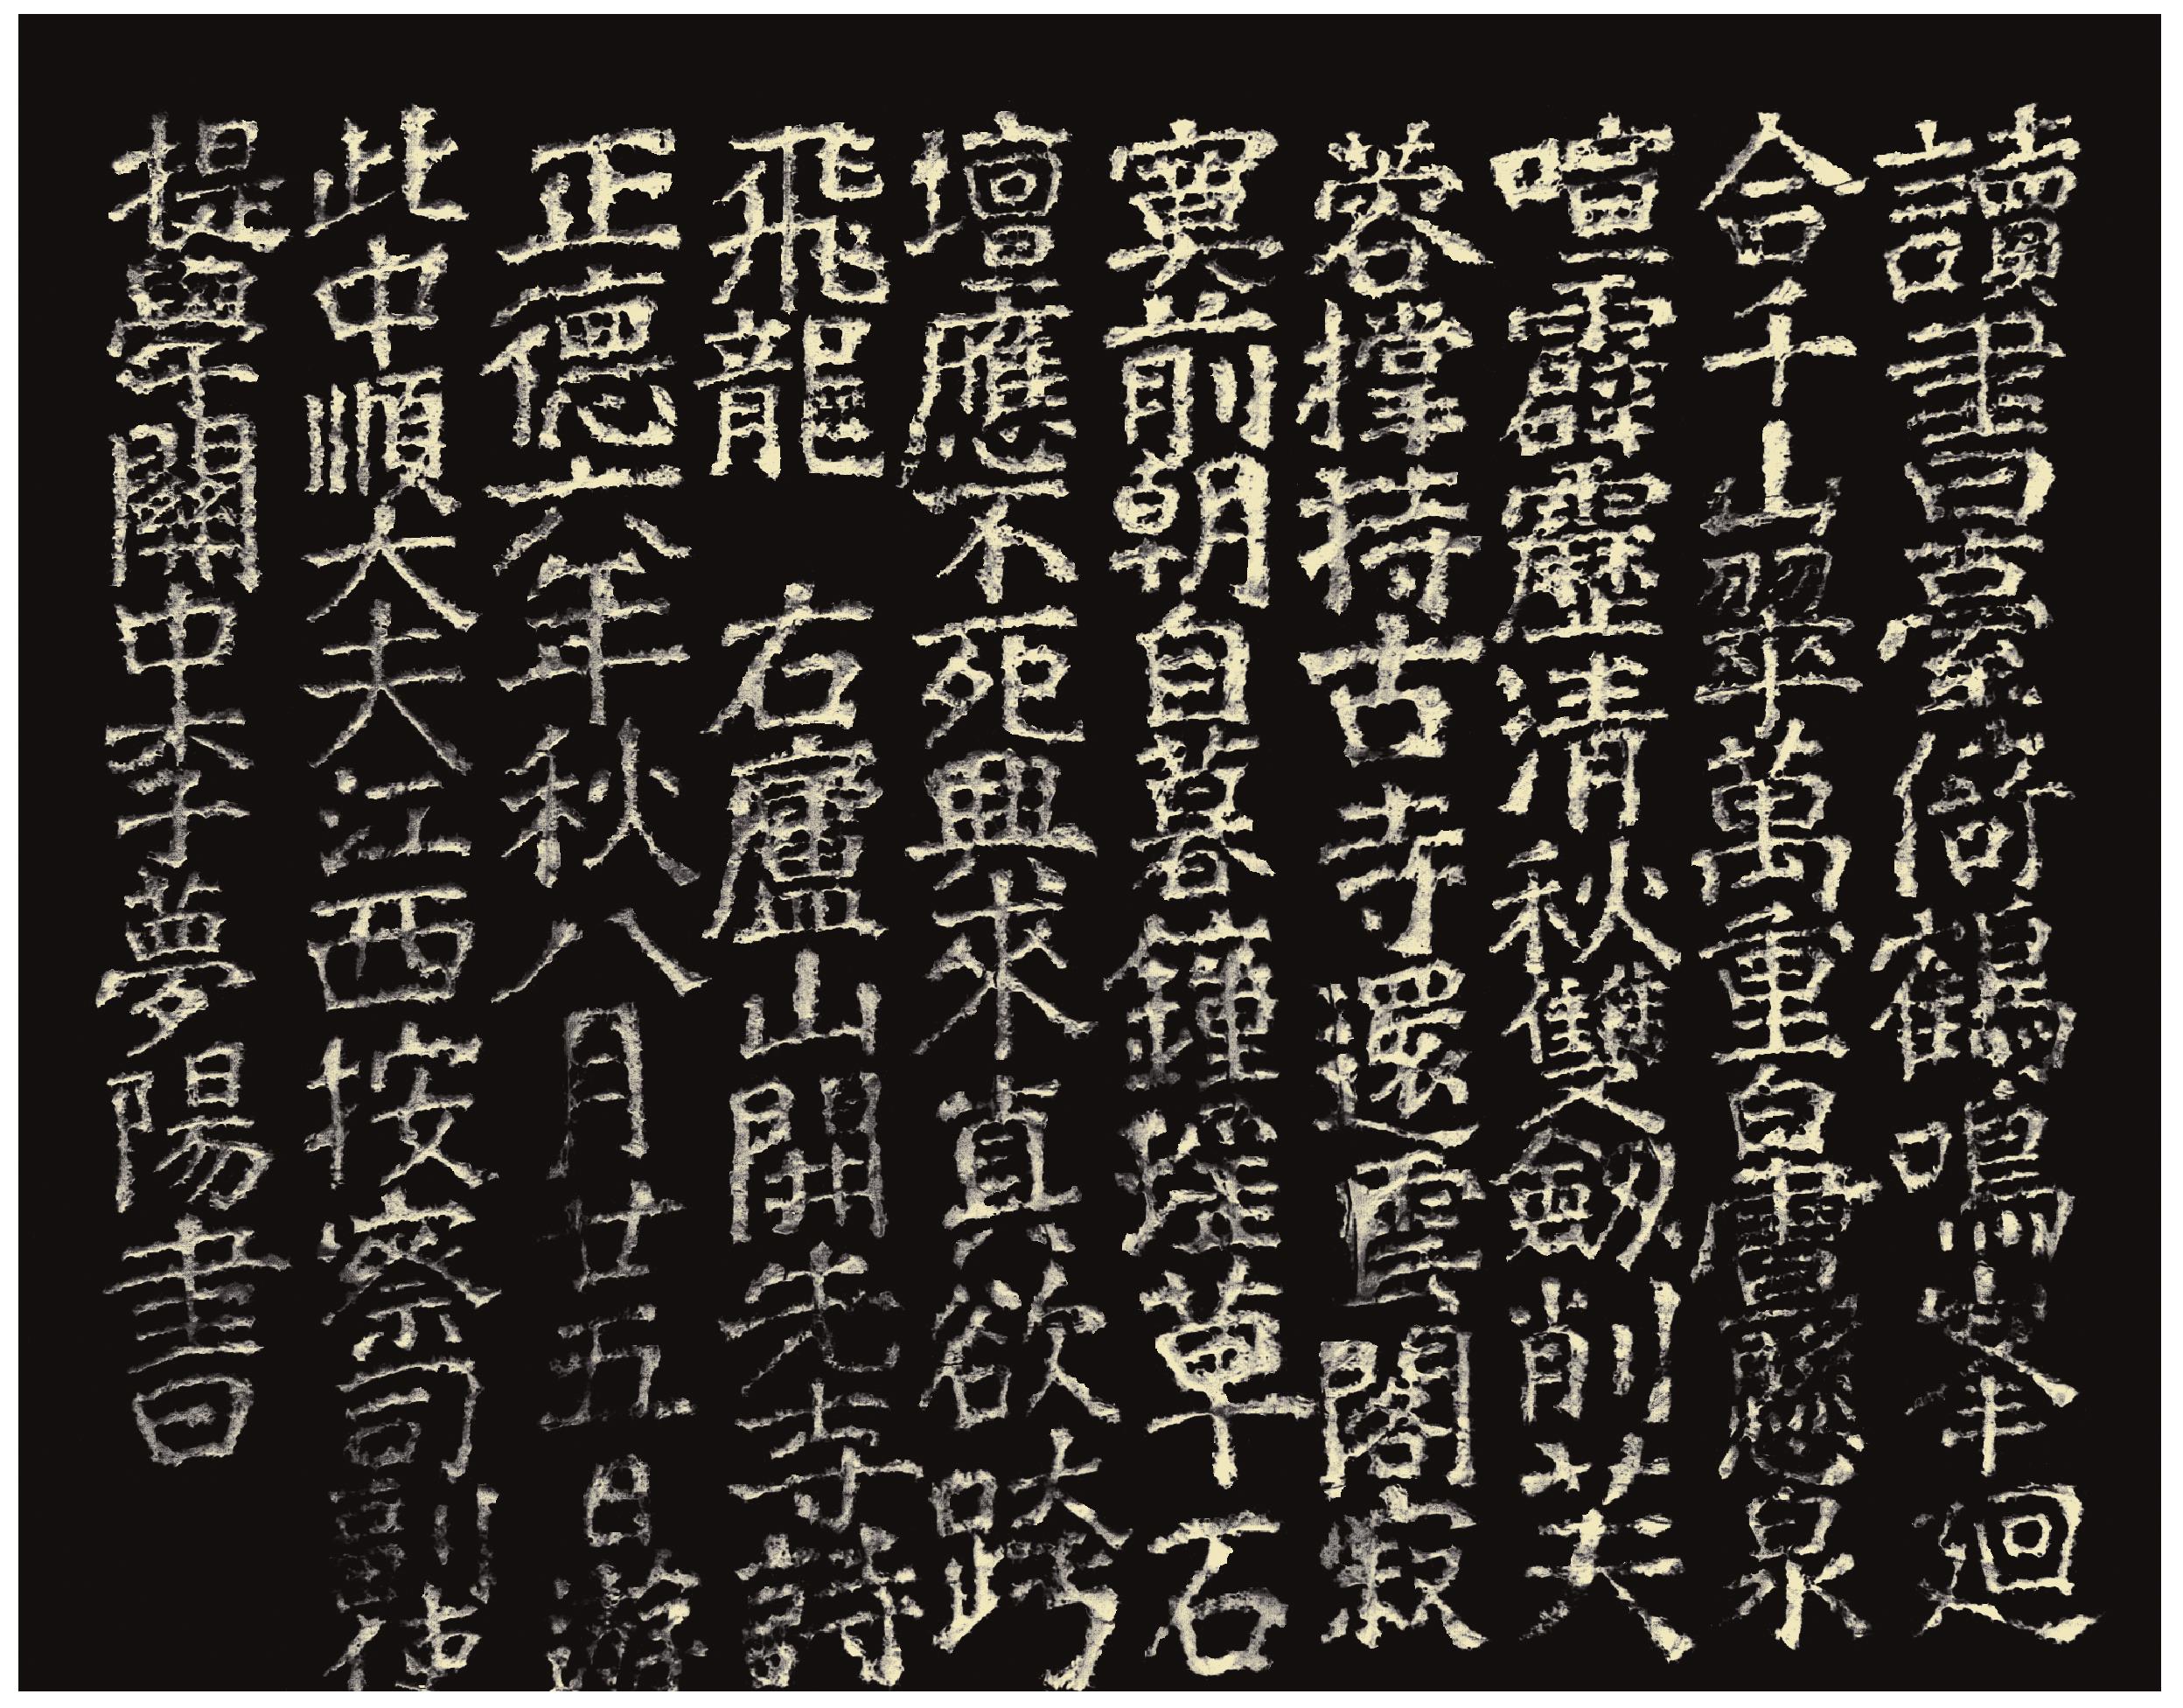 讀書臺倚鶴鳴峯廻
合千山翠萬重白晝懸泉
喧霹靂清秋雙劒削芙
蓉撑持古寺還雲閣寂
寞前朝自暮鐘瑤草石
壇應不死興來真欲跨
飛龍 右廬山開先寺詩
正德六年秋八月廿五日游
此中順大夫江西按察司副使
提學關中李夢陽書